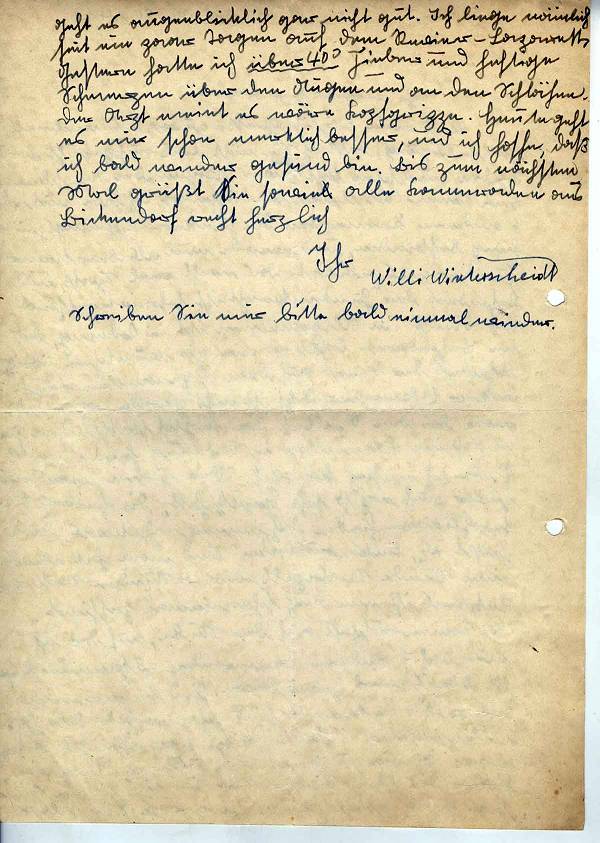 geht es augenblicklich gar nicht gut. Ich liege nämlich
seit ein paar Tagen auf dem Revier-Lazarett,
Gestern hatte ich über 40° Fieber und heftige
Schmerzen über den Augen und an den Schläfen.
Der Arzt meint es wäre Kopfgrippe. Heute geht
es mir schon merklich besser, und ich hoffe, daß
ich bald wieder gesund bin. Bis zum nächsten
Mal grüßt Sie sowie alle Kameraden aus
Birkendorf recht herzlich
Ihr
Willi Winterscheidt
Schreiben Sie mir bitte bald einmal wieder.